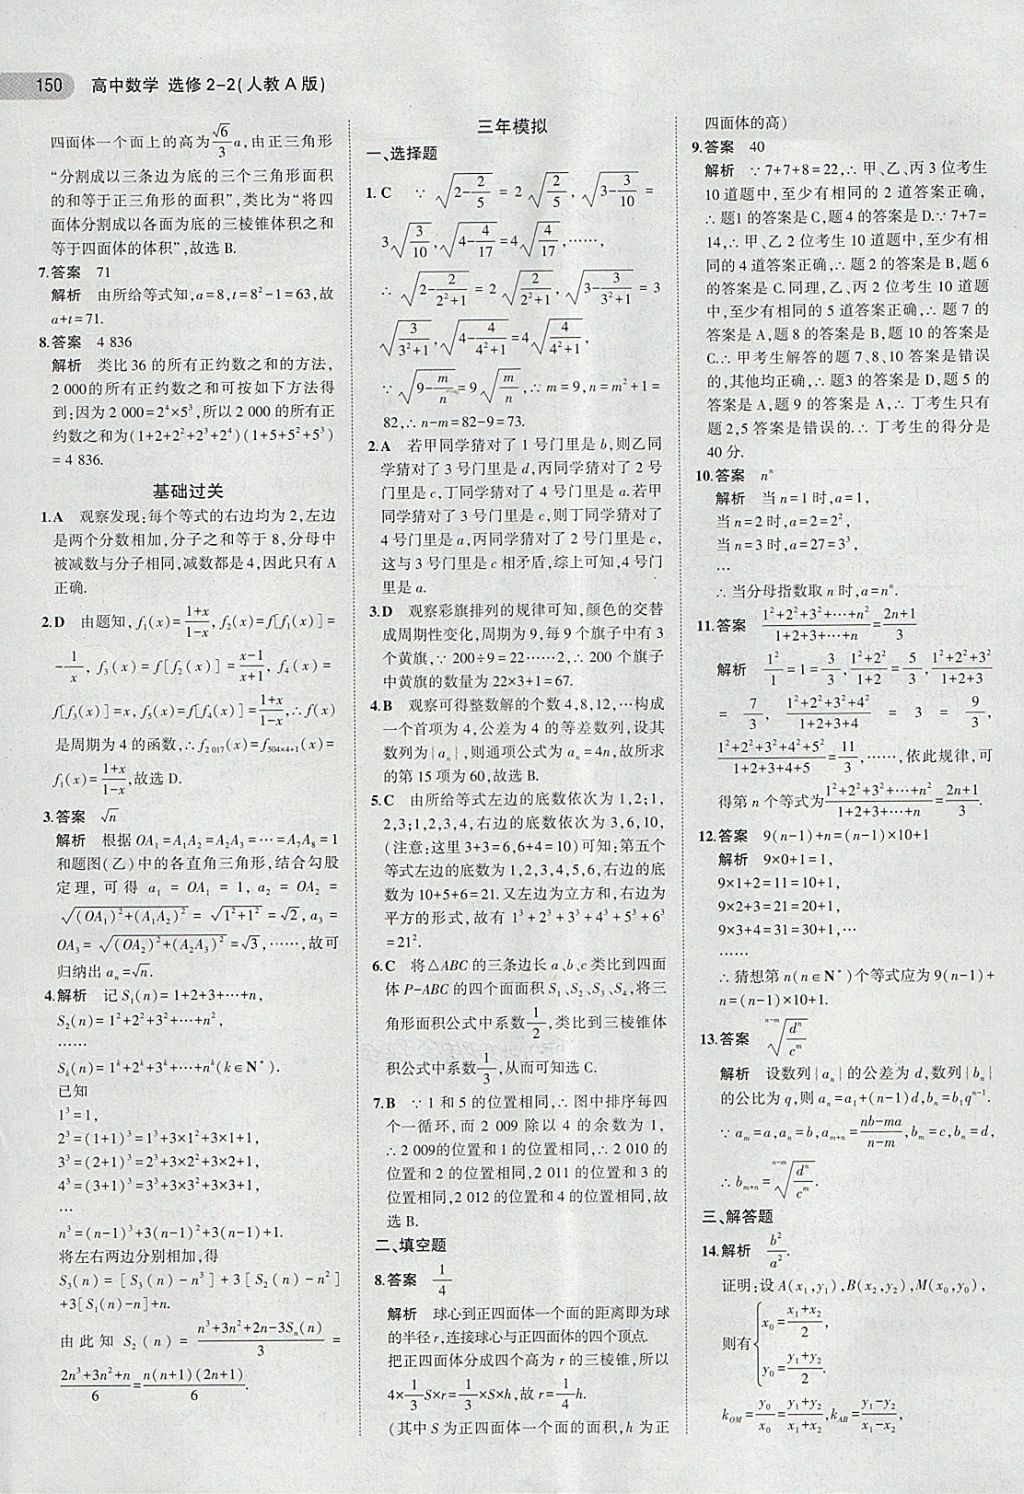 150 高中数学 选修2-2(人教A版)
四面体一个面上的高为$\frac{\sqrt{6}}{3}a$,由正三角形
“分割成以三条边为底的三个三角形面积
的和等于正三角形的面积”,类比为“将四
面体分割成以各面为底的三棱锥体积之和
等于四面体的体积”,故选B.
7.答案 71
解析 由所给等式知,a=8,t=8²-1=63,故
a+t=71.
8.答案 4 836
解析 类比36的所有正约数之和的方法,
2 000的所有正约数之和可按如下方法得
到:因为2 000=2⁴×5³,所以2 000的所有正
约数之和为(1+2+2²+2³+2⁴)(1+5+5²+5³)
=4 836.
基础过关
1.A 观察发现:每个等式的右边均为2,左边
是两个分数相加,分子之和等于8,分母中
被减数与分子相同,减数都是4,因此只有A
正确.
2.D 由题知,f₁(x)=$\frac{1+x}{1-x}$,f₂(x)=f[f₁(x)]=
-$\frac{1}{x}$,f₃(x)=f[f₂(x)]=$\frac{x-1}{x+1}$,f₄(x)=
f[f₃(x)]=x,f₅(x)=f[f₄(x)]=$\frac{1+x}{1-x}$,∴f(x)
是周期为4的函数,∴f₂ ₀₁₇(x)=f₅₀₄ₓ₄₊₁(x)=
f₁(x)=$\frac{1+x}{1-x}$,故选D.
3.答案 $\sqrt{n}$
解析 根据OA₁=A₁A₂=A₂A₃=…=A₇A₈=1
和题图(乙)中的各直角三角形,结合勾股
定理,可得a₁=OA₁=1,a₂=OA₂=
$\sqrt{(OA_1)^2+(A_1A_2)^2}$=$\sqrt{1^2+1^2}$=$\sqrt{2}$,a₃=
OA₃=$\sqrt{(OA_2)^2+(A_2A_3)^2}$=$\sqrt{3}$,……,故可
归纳出aₙ=$\sqrt{n}$.
4.解析 记S₁(n)=1+2+3+…+n,
S₂(n)=1²+2²+3²+…+n²,
……
Sₖ(n)=1ᵏ+2ᵏ+3ᵏ+…+nᵏ(k∈N*).
已知
1³=1,
2³=(1+1)³=1³+3×1²+3×1+1,
3³=(2+1)³=2³+3×2²+3×2+1,
4³=(3+1)³=3³+3×3²+3×3+1,
…
n³=(n-1)³+3(n-1)²+3(n-1)+1.
将左右两边分别相加,得
S₃(n)=[S₃(n)-n³]+3[S₂(n)-n²]
+3[S₁(n)-n]+n.
由此知S₂(n)=$\frac{n^3+3n^2+2n-3S_n(n)}{3}$=
$\frac{2n^3+3n^2+n}{6}$=$\frac{n(n+1)(2n+1)}{6}$.
三年模拟
一、选择题
1.C ∵$\sqrt{2-\frac{2}{5}}$=2$\sqrt{\frac{2}{5}}$,$\sqrt{3-\frac{3}{10}}$=
3$\sqrt{\frac{3}{10}}$,$\sqrt{4-\frac{4}{17}}$=4$\sqrt{\frac{4}{17}}$,……,
∴$\sqrt{2-\frac{2}{2^2+1}}$=2$\sqrt{\frac{2}{2^2+1}}$,$\sqrt{3-\frac{3}{3^2+1}}$=3
$\sqrt{\frac{3}{3^2+1}}$,$\sqrt{4-\frac{4}{4^2+1}}$=4$\sqrt{\frac{4}{4^2+1}}$,……,
∵$\sqrt{9-\frac{m}{n}}$=9$\sqrt{\frac{m}{n}}$,∴m=9,n=m²+1=
82,∴n-m=82-9=73.
2.A 若甲同学猜对了1号门里是b,则乙同
学猜对了3号门里是d,丙同学猜对了2号
门里是c,丁同学猜对了4号门里是a.若甲
同学猜对了3号门里是c,则丁同学猜对了
4号门里是a,丙同学猜对了2号门里是c,
这与3号门里是c相矛盾,综上可知,4号门
里是a.
3.D 观察彩旗排列的规律可知,颜色的交替
成周期性变化,周期为9,每9个旗子中有3
个黄旗,∵200÷9=22……2,∴200个旗子
中黄旗的数量为22×3+1=67.
4.B 观察可得整数解的个数4,8,12,…构成
一个首项为4,公差为4的等差数列,设其
数列为{aₙ},则通项公式为aₙ=4n,故所求
的第15项为60,故选B.
5.C 由所给等式左边的底数依次为1,2;1,
2,3;1,2,3,4,右边的底数依次为3,6,10,
(注意:这里3+3=6,6+4=10)可知;第五个
等式左边的底数为1,2,3,4,5,6,右边的底
数为10+5+6=21.又左边为立方和,右边为
平方的形式,故有1³+2³+3³+4³+5³+6³
=21².
6.C 将△ABC的三条边长a、b、c类比到四面
体P-ABC的四个面面积S₁、S₂、S₃、S₄,将三
角形面积公式中系数$\frac{1}{2}$,类比到三棱锥体
积公式中系数$\frac{1}{3}$,从而可知选C.
7.B ∵1和5的位置相同,∴图中排序每四
个一循环,而2 009除以4的余数为1,
∴2 009的位置和1的位置相同,∴2 010的
位置和2的位置相同,2 011的位置和3的
位置相同,2 012的位置和4的位置相同,故
选B.
二、填空题
8.答案 $\frac{1}{4}$
解析 球心到正四面体一个面的距离即为球
的半径r,连接球心与正四面体的四个顶点.
把正四面体分成四个高为r的三棱锥,所以
4×$\frac{1}{3}$S×r=$\frac{1}{3}$×S×h,故r=$\frac{1}{4}$h.
(其中S为正四面体一个面的面积,h为正
四面体的高)
9.答案 40
解析 ∵7+7+8=22,∴甲、乙、丙3位考生
10道题中,至少有相同的2道答案正确,
∴题1的答案是C,题4的答案是D.∵7+7=
14,∴甲、乙2位考生10道题中,至少有相
同的4道答案正确,∴题2的答案是B,题6
的答案是C.同理,乙、丙2位考生10道题
中,至少有相同的5道答案正确,∴题7的
答案是A,题8的答案是B,题10的答案是
C.∴甲考生解答的题7、8、10答案是错误
的,其他均正确.∴题3的答案是D,题5的
答案是A,题9的答案是A,∴丁考生只有
题2,5答案是错误的.∴丁考生的得分是
40分.
10.答案 nⁿ
解析 当n=1时,a=1,
当n=2时,a=2=2²,
当n=3时,a=27=3³,
…
∴当分母指数取n时,a=nⁿ.
11.答案 $\frac{1^2+2^2+3^2+…+n^2}{1+2+3+…+n}$=$\frac{2n+1}{3}$
解析 $\frac{1^2}{1}$=1=$\frac{3}{3}$,$\frac{1^2+2^2}{1+2}$=$\frac{5}{3}$,$\frac{1^2+2^2+3^2}{1+2+3}$
=$\frac{7}{3}$,$\frac{1^2+2^2+3^2+4^2}{1+2+3+4}$=3=$\frac{9}{3}$,
$\frac{1^2+2^2+3^2+4^2+5^2}{1+2+3+4+5}$=$\frac{11}{3}$,……,依此规律,可
得第n个等式为$\frac{1^2+2^2+3^2+…+n^2}{1+2+3+…+n}$=$\frac{2n+1}{3}$.
12.答案 9(n-1)+n=(n-1)×10+1
解析 9×0+1=1,
9×1+2=11=10+1,
9×2+3=21=20+1,
9×3+4=31=30+1,…
……
∴猜想第n(n∈N*)个等式应为9(n-1)+
n=(n-1)×10+1.
13.答案 $\sqrt[n-m]{\frac{d^n}{c^m}}$
解析 设数列{aₙ}的公差为d,数列{bₙ}
的公比为q,则aₙ=a₁+(n-1)d,bₙ=b₁qⁿ⁻¹.
∵aₘ=a,aₙ=b,aₘ₊ₙ=$\frac{nb-ma}{n-m}$,bₘ=c,bₙ=d,
∴bₘ₊ₙ=$\sqrt[n-m]{\frac{d^n}{c^m}}$.
三、解答题
14.解析 $\frac{b^2}{a^2}$.
证明:设A(x₁,y₁),B(x₂,y₂),M(x₀,y₀),
则有$\begin{cases}x_0=\frac{x_1+x_2}{2},\\y_0=\frac{y_1+y_2}{2}.\end{cases}$
$k_{OM}$=$\frac{y_0}{x_0}$=$\frac{y_1+y_2}{x_1+x_2}$,$k_{AB}$=$\frac{y_1-y_2}{x_1-x_2}$,